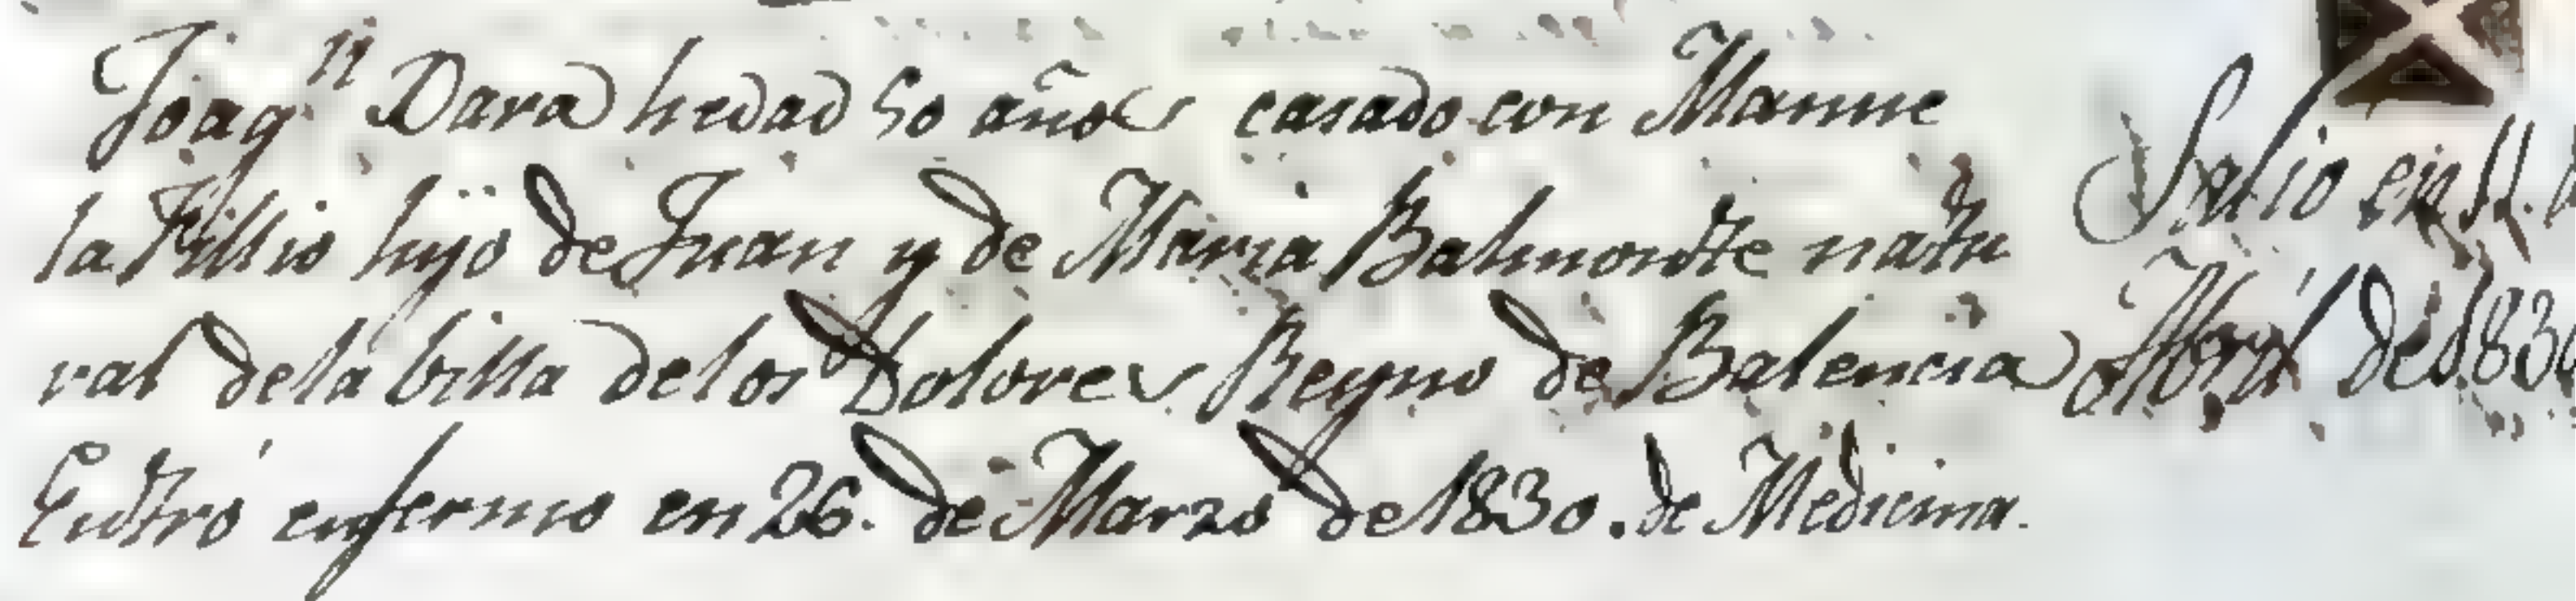 Joaqn Dara hedad 50 años casado con Manue
la Fillio hijo de Juan y de Maria Balmonte natu
ral de la billa de los Dolores Reyno de Balencia
Entró enfermo en 26. de Marzo de 1830. de Medicina.
Salio en 11. d
Abril de 1830